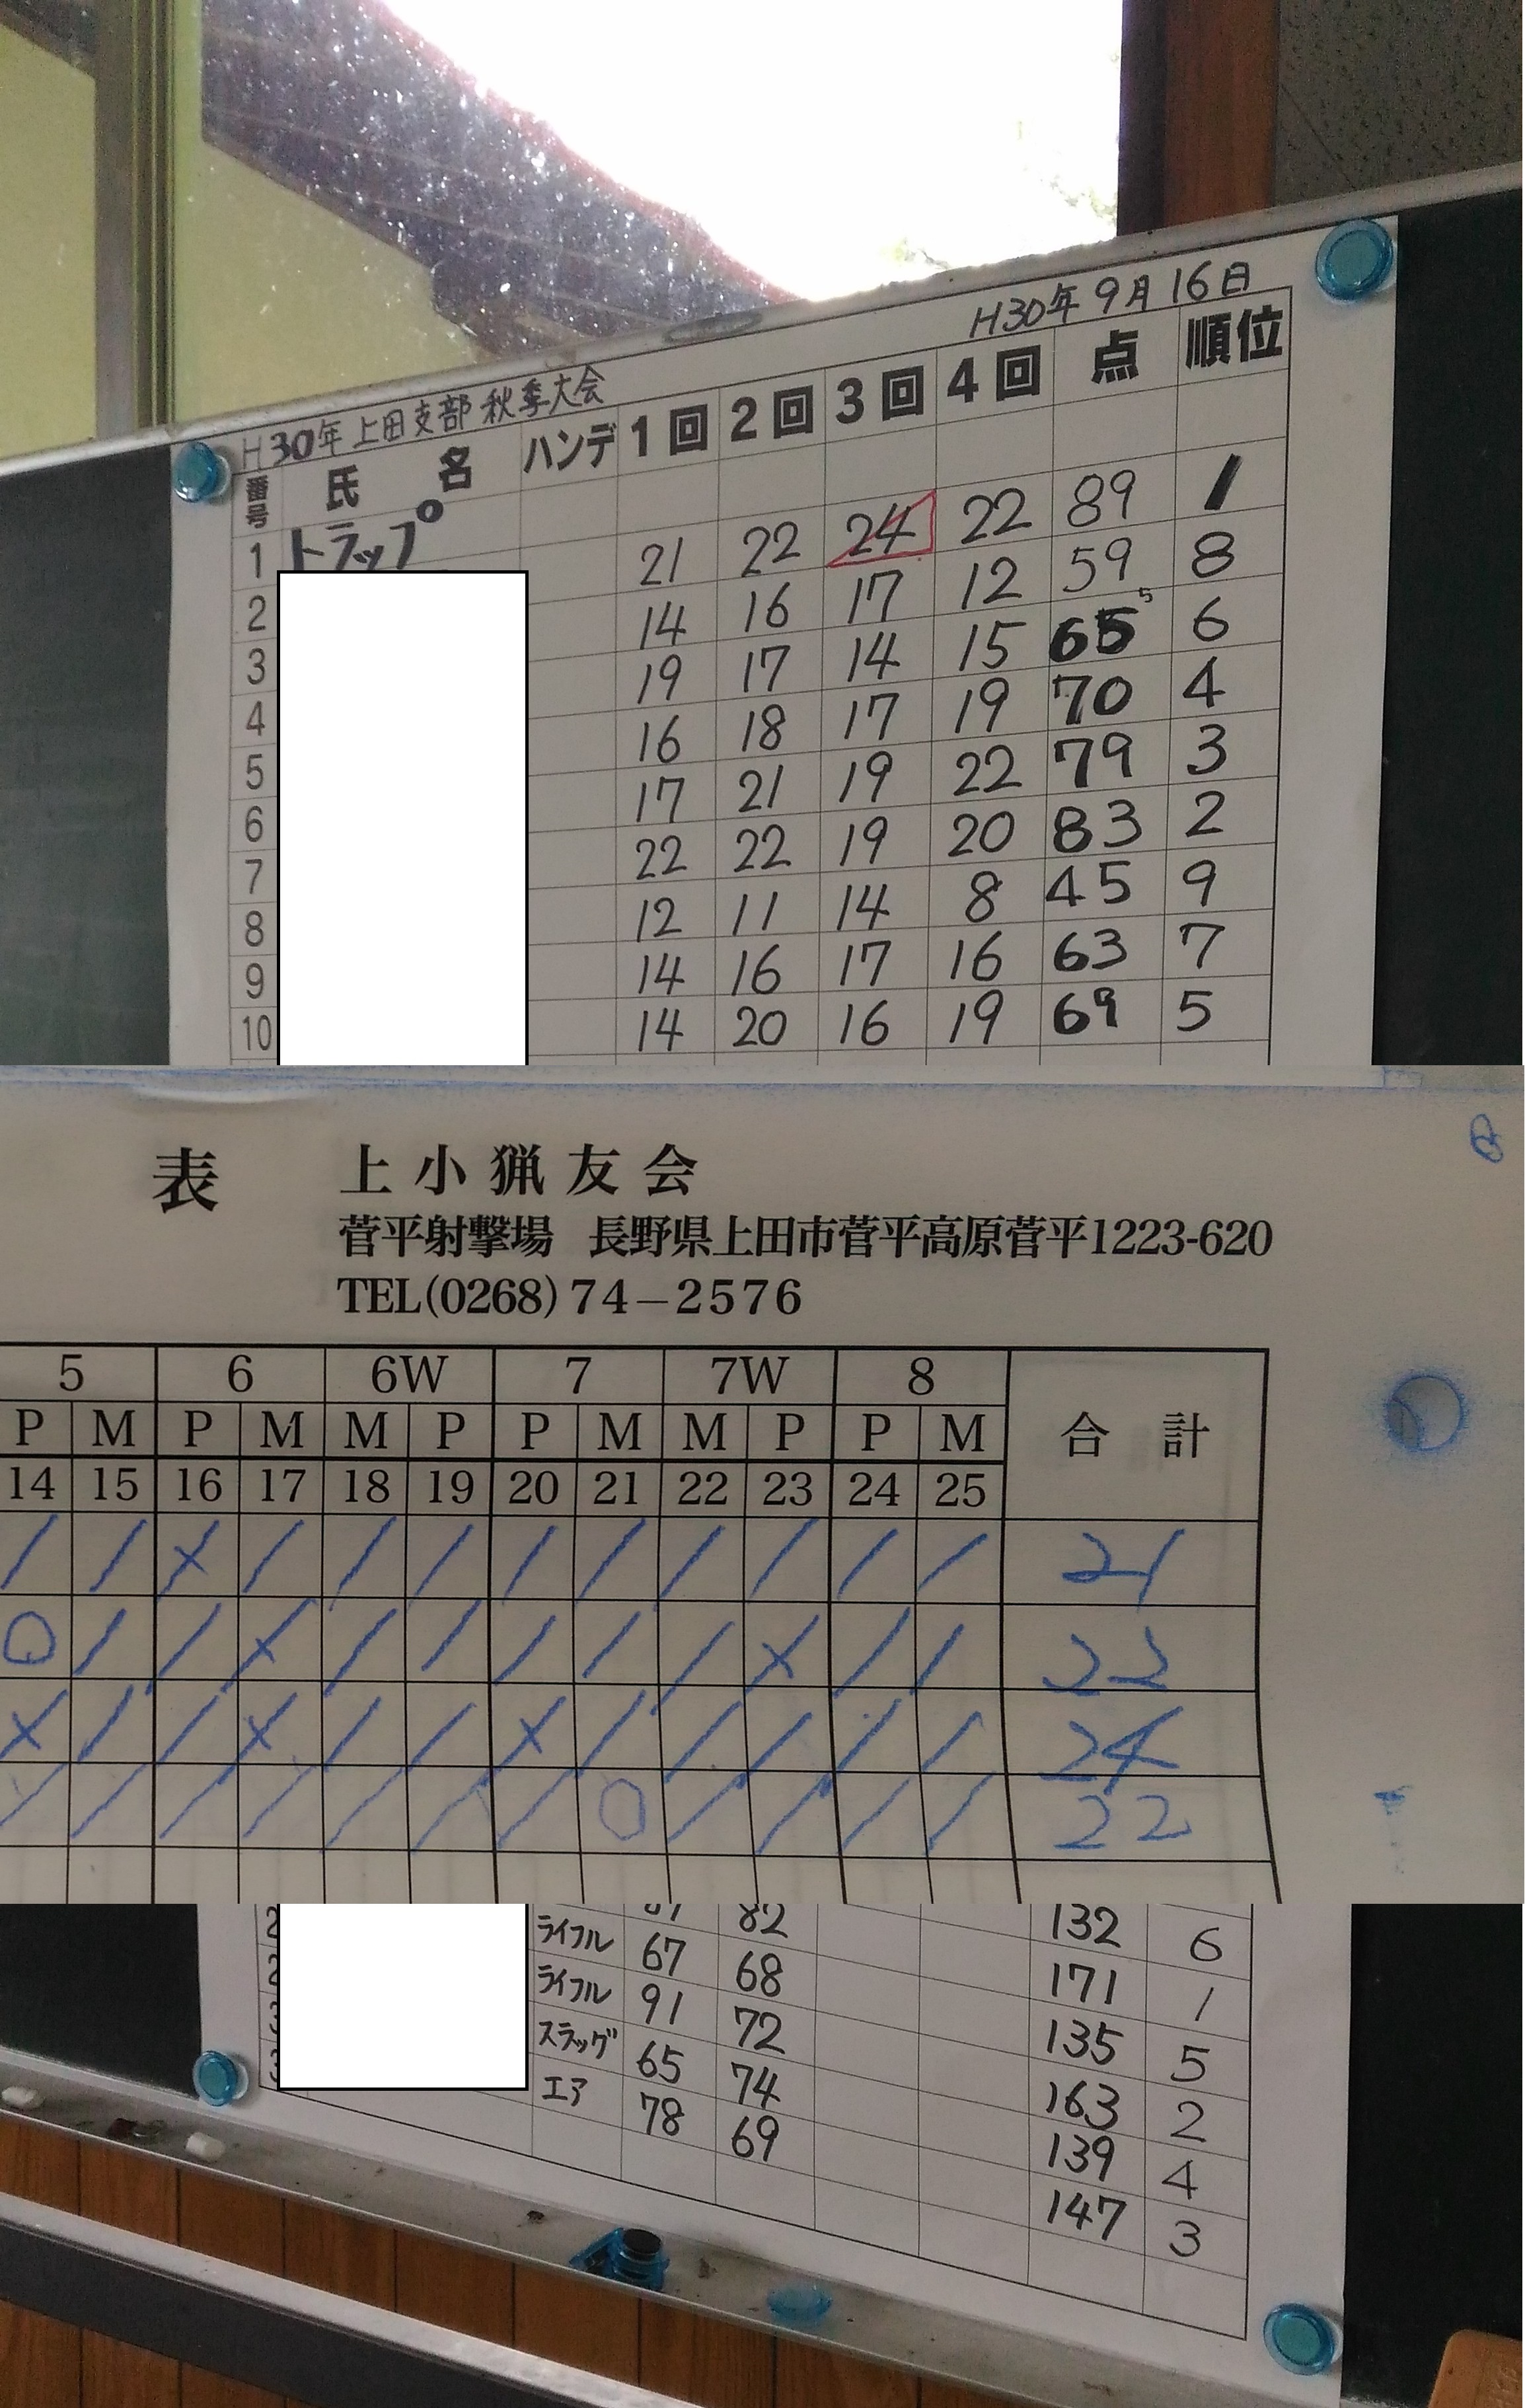 H30年9月16日
H30年 上田支部 秋季大会
番号 氏 名 ハンデ 1回 2回 3回 4回 点 順位
1 トラップ
2 21 22 24 22 89 1
3 14 16 17 12 59 8
4 19 17 14 15 65 5 6
5 16 18 17 19 70 4
6 17 21 19 22 79 3
7 22 22 19 20 83 2
8 12 11 14 8 45 9
9 14 16 17 16 63 7
10 14 20 16 19 69 5
表 上小猟友会
菅平射撃場 長野県上田市菅平高原菅平1223-620
TEL(0268)74-2576
5 6 6W 7 7W 8 合計
P M P M M P P M M P P M
14 15 16 17 18 19 20 21 22 23 24 25
/ / × / / / / / / / / / 21
O / / × / / / / / × / / 22
× / / × / / × / / / / / 24
/ / / / / / / O / / / / 22
82 132 6
ライフル 67 68 171 1
ライフル 91 72 135 5
スラッグ 65 74 163 2
エア 78 69 139 4
147 3